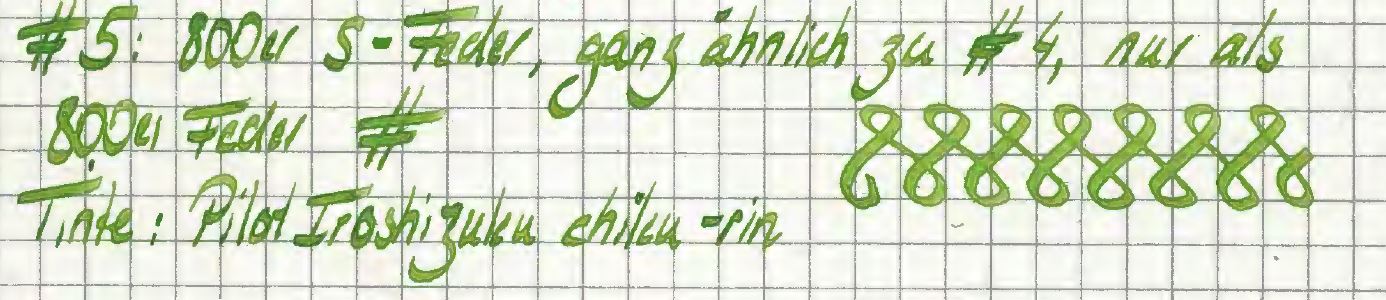 #5: 800er S-Feder, ganz ähnlich zu #4, nur als
800er Feder #
Tinte: Pilot Iroshizuku chiku-rin